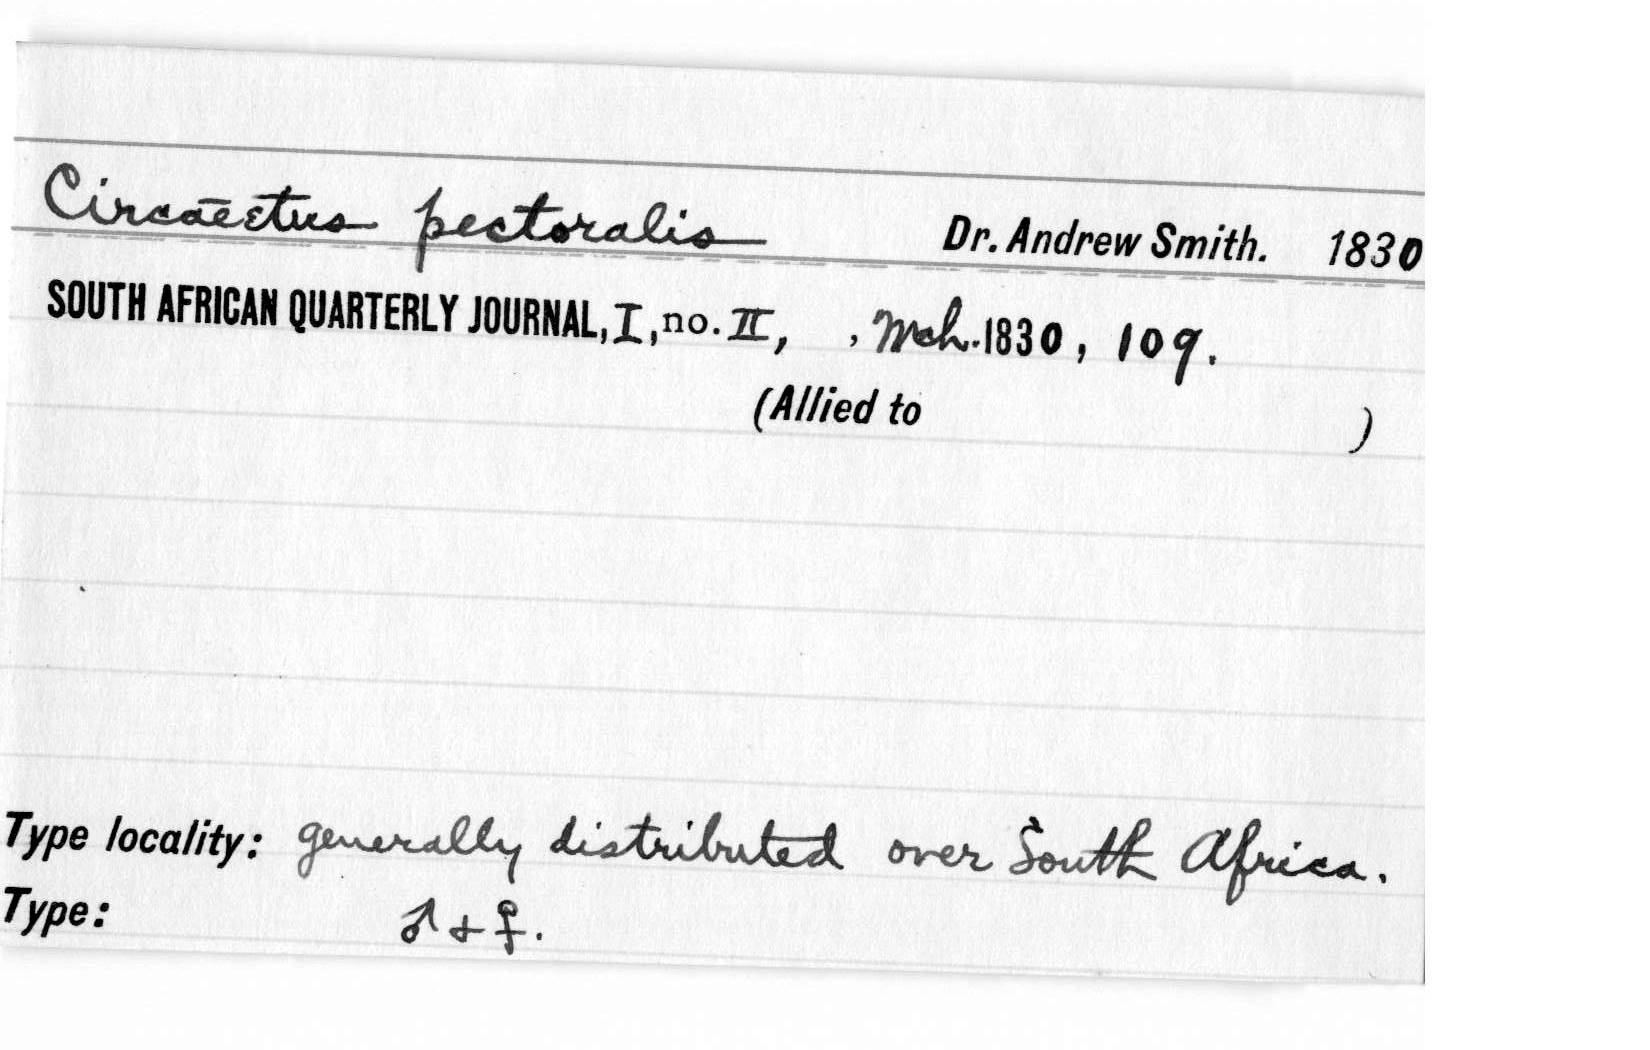 Circaëtus pectoralis Dr. Andrew Smith. 1830
SOUTH AFRICAN QUARTERLY JOURNAL, I, no. II, , Mch. 1830, 109.
(Allied to )
Type locality: generally distributed over South Africa.
Type: ♂ & ♀.